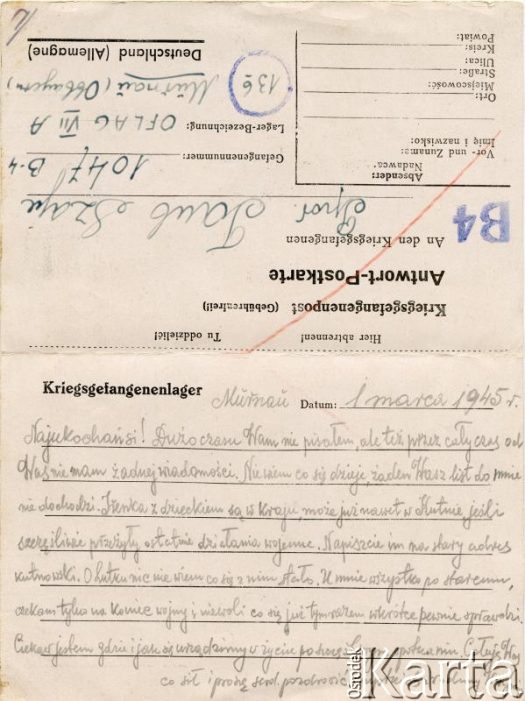 Ort:
Miejscowość:
Straße:
Ulica:
Kreis:
Powiat:
Absender:
Nadawca:
Vor- und Zuname:
Imię i nazwisko:
Hier abtrennen!
Tu oddzielić!
Kriegsgefangenenpost (Gebührenfrei!)
Antwort-Postkarte
An den Kriegsgefangenen
B4
Jakub Szaja
Gefangenennummer: 1047 B-4
Lager-Bezeichnung: OFLAG VII A
136
Murnau (Obbayern)
Deutschland (Allemagne)
Kriegsgefangenenlager Murnau Datum: 1 marca 1945 r.
Najukochańsi! Dużo czasu Wam nie pisałem, ale też przez cały czas od
Was nie mam żadnej wiadomości. Nie wiem co się dzieje, żaden Wasz list do mnie
nie dochodzi. Irenka z dzieckiem są w kraju, może już nawet w Kutnie jeśli
szczęśliwie przeżyły ostatnie działania wojenne. Napiszcie im na stary adres
kutnowski. O nic nie wiem co się z nim stało. U mnie wszystko po staremu,
czekam tylko na koniec wojny i niewoli co się już tym razem wkrótce pewnie sprawdzi.
Ciekaw jestem gdzie i jak się urządzimy w życiu Całuję Was
co sił i proszę serd. pozdrowić
Ośrodek
Karta